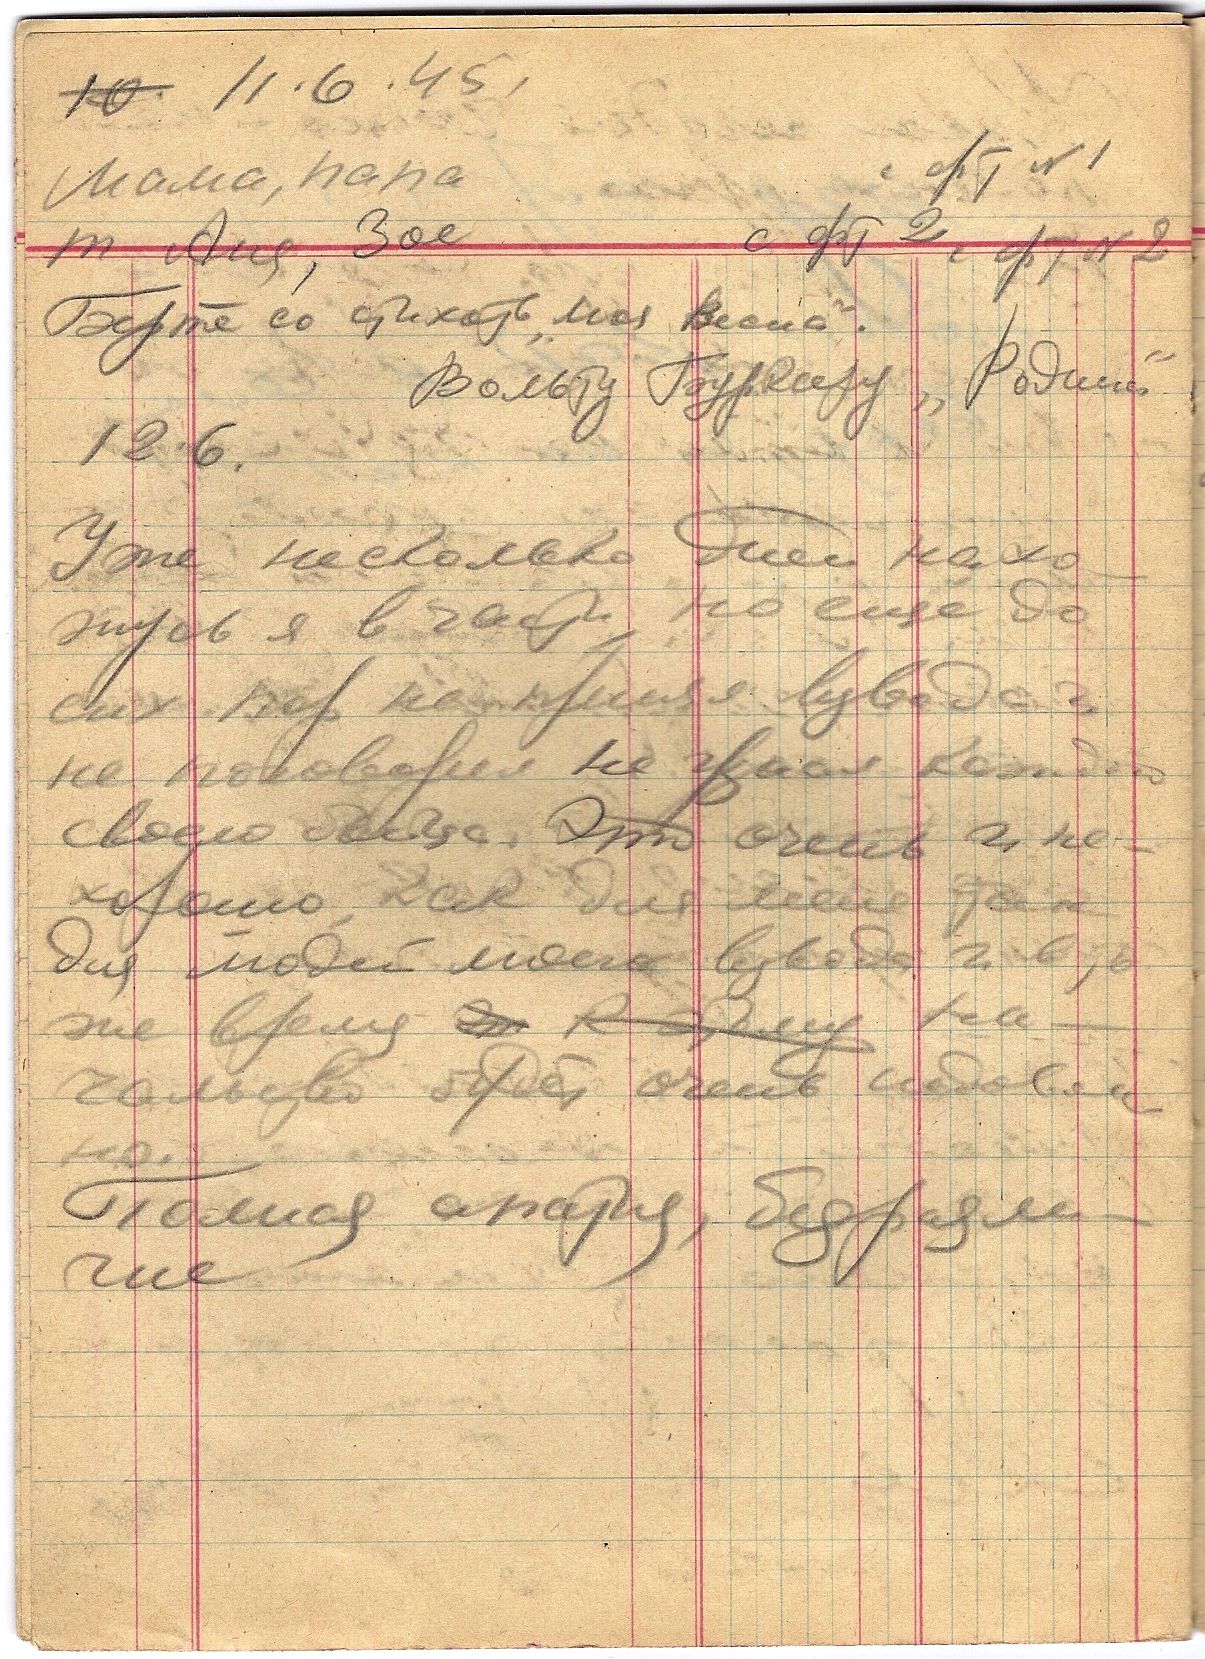 10. 11.6.45.
Мама, папа с фТ №1
т Аня, Зое с фТ 2 с фТ №2
Берте со стихотв „моя весна“.
Вольту „Родине“
12.6.
Уже несколько дней нахо-
жусь я в части, но еще до
сих пор не принял взвода и
не поговорил не узнал каждого
своего бойца. Это очень и не-
хорошо, как для меня так
для людей моего взвода и в то
же время к на-
чальство будет очень недоволь
но.
Полная апатия, безразли-
чие